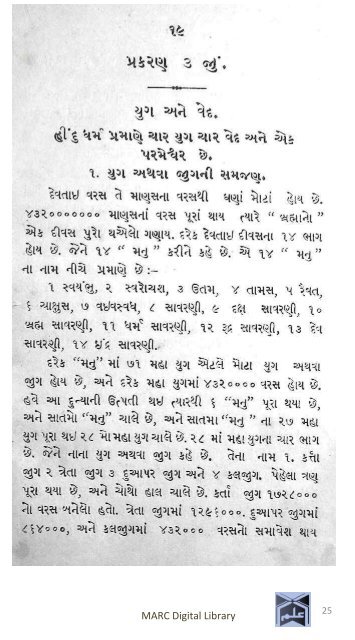 ૧૯
પ્રકરણ ૩ જું.
યુગ અને વેદ.
હીંદુ ધર્મ પ્રમાણે ચાર યુગ ચાર વેદ અને એક
પરમેશ્વર છે.
૧. યુગ અથવા જીુગની સમજણ.
દેવતાઇ વરસ તે માણસના વરસથી ઘણાં મોટાં હોય છે.
૪૩૨૦૦૦૦૦૦૦ માણસનાં વરસ પૂરાં થાય ત્યારે “ બ્રહ્માનો ”
એક દીવસ પુરો થએલો ગણાય. દરેક દેવતાઇ દીવસના ૧૪ ભાગ
હોય છે. જેને ૧૪ “ મનુ ” કરીને કહે છે. એ ૧૪ “ મનુ ”
ના નામ નીચે પ્રમાણે છે :–
૧ સ્વયંભુ, ૨ સ્વરોચશ, ૩ ઉતમ, ૪ તામસ, ૫ રૈવત,
૬ ચાક્ષુસ, ૭ વઇવસ્વધ, ૮ સાવરણી, ૯ દક્ષ સાવરણી, ૧૦
બ્રહ્મ સાવરણી, ૧૧ ધર્મ સાવરણી, ૧૨ રૂદ્ર સાવરણી, ૧૩ દેવ
સાવરણી, ૧૪ ઇંદ્ર સાવરણી.
દરેક “મનુ” માં ૭૧ મહા યુગ એટલે મોટા યુગ અથવા
જીુગ હોય છે, અને દરેક મહા યુગમાં ૪૩૨૦૦૦૦ વરસ હોય છે.
હવે આ દુન્યાની ઉત્પતી થઇ ત્યારથી ૬ “મનુ” પૂરા થયા છે,
અને સાતમો “મનુ” ચાલે છે, અને સાતમા “મનુ ” ના ૨૭ મહા
યુગ પૂરા થઇ ૨૮ મો મહા યુગ ચાલે છે. ૨૮ માં મહા યુગના ચાર ભાગ
છે. જેને નાના યુગ અથવા જીુગ કહે છે. તેના નામ ૧. કર્તા
જીુગ ૨ ત્રેતા જીુગ ૩ દુઆપર જીુગ અને ૪ કલજીુગ. પેહેલા ત્રણ
પૂરા થયા છે, અને ચોથો હાલ ચાલે છે. કર્તા જીુગ ૧૭૨૮૦૦૦
નો વરસ બનેલો હતો. ત્રેતા જીુગમાં ૧૨૯૬૦૦૦. દુઆપર જીુગમાં
૮૬૪૦૦૦, અને કલજીુગમાં ૪૩૨૦૦૦ વરસનો સમાવેશ થાય
MARC Digital Library
علم
25